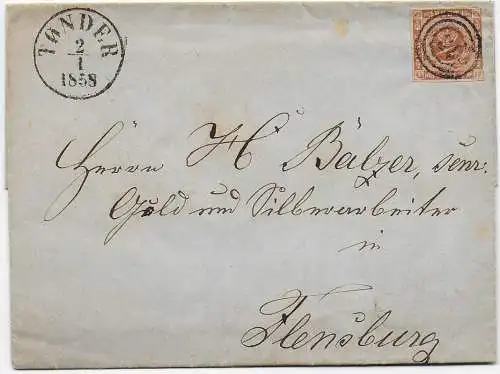 TØNDER
2/1
1858
Herrn H Bälzer, senr.
Gold und Silberarbeiter
in
Flensburg